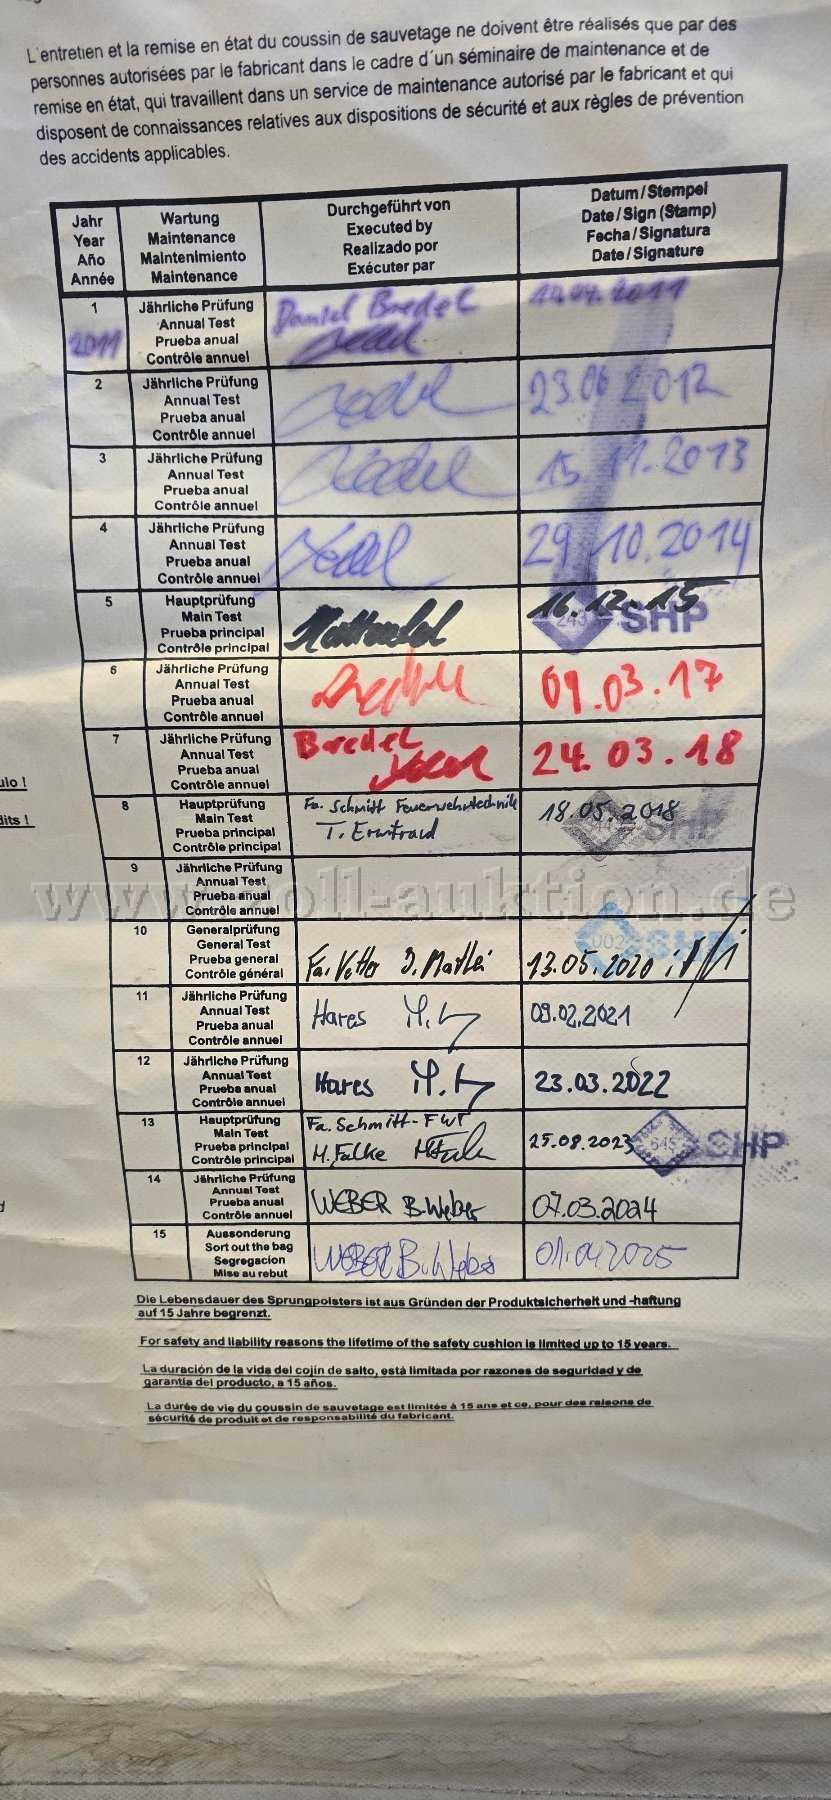 L'entretien et la remise en état du coussin de sauvetage ne doivent être réalisés que par des
personnes autorisées par le fabricant dans le cadre d´un séminaire de maintenance et de
remise en état, qui travaillent dans un service de maintenance autorisé par le fabricant et qui
disposent de connaissances relatives aux dispositions de sécurité et aux règles de prévention
des accidents applicables.
Jahr
Year
Año
Année
Wartung
Maintenance
Maintenimiento
Maintenance
Durchgeführt von
Executed by
Realizado por
Exécuter par
Datum/Stempel
Date/Sign (Stamp)
Fecha/Signatura
Date/Signature
1
2011
Jährliche Prüfung
Annual Test
Prueba anual
Contrôle annuel
Daniel Bredel
2011
2
Jährliche Prüfung
Annual Test
Prueba anual
Contrôle annuel
23.06 2012
3
Jährliche Prüfung
Annual Test
Prueba anual
Contrôle annuel
15.11.2013
4
Jährliche Prüfung
Annual Test
Prueba anual
Contrôle annuel
29.10.2014
5
Hauptprüfung
Main Test
Prueba principal
Contrôle principal
16.12.15
243 SHP
6
Jährliche Prüfung
Annual Test
Prueba anual
Contrôle annuel
09.03.17
7
Jährliche Prüfung
Annual Test
Prueba anual
Contrôle annuel
Bredel
24.03.18
8
Hauptprüfung
Main Test
Prueba principal
Contrôle principal
Fa. Schmitt Feuerwehrtechnik
T.
18.05.2018
SHP
9
Jährliche Prüfung
Annual Test
Prueba anual
Contrôle annuel
www.zoll-auktion.de
10
Generalprüfung
General Test
Prueba general
Contrôle général
Fa. Vetter
13.05.2020
002 SHP
11
Jährliche Prüfung
Annual Test
Prueba anual
Contrôle annuel
Hares
09.02.2021
12
Jährliche Prüfung
Annual Test
Prueba anual
Contrôle annuel
Hares
23.03.2022
13
Hauptprüfung
Main Test
Prueba principal
Contrôle principal
Fa. Schmitt-FWT
M. Falke
25.08.2023
645 SHP
14
Jährliche Prüfung
Annual Test
Prueba anual
Contrôle annuel
WEBER B. Weber
07.03.2024
15
Aussonderung
Sort out the bag
Segregacion
Mise au rebut
WEBER B. Weber
01.04.2025
ulo !
dits !
Die Lebensdauer des Sprungpolsters ist aus Gründen der Produktsicherheit und -haftung
auf 15 Jahre begrenzt.
For safety and liability reasons the lifetime of the safety cushion is limited up to 15 years.
La duración de la vida del cojín de salto, está limitada por razones de seguridad y de
garantía del producto, a 15 años.
La durée de vie du coussin de sauvetage est limitée à 15 ans et ce, pour des raisons de
sécurité de produit et de responsabilité du fabricant.